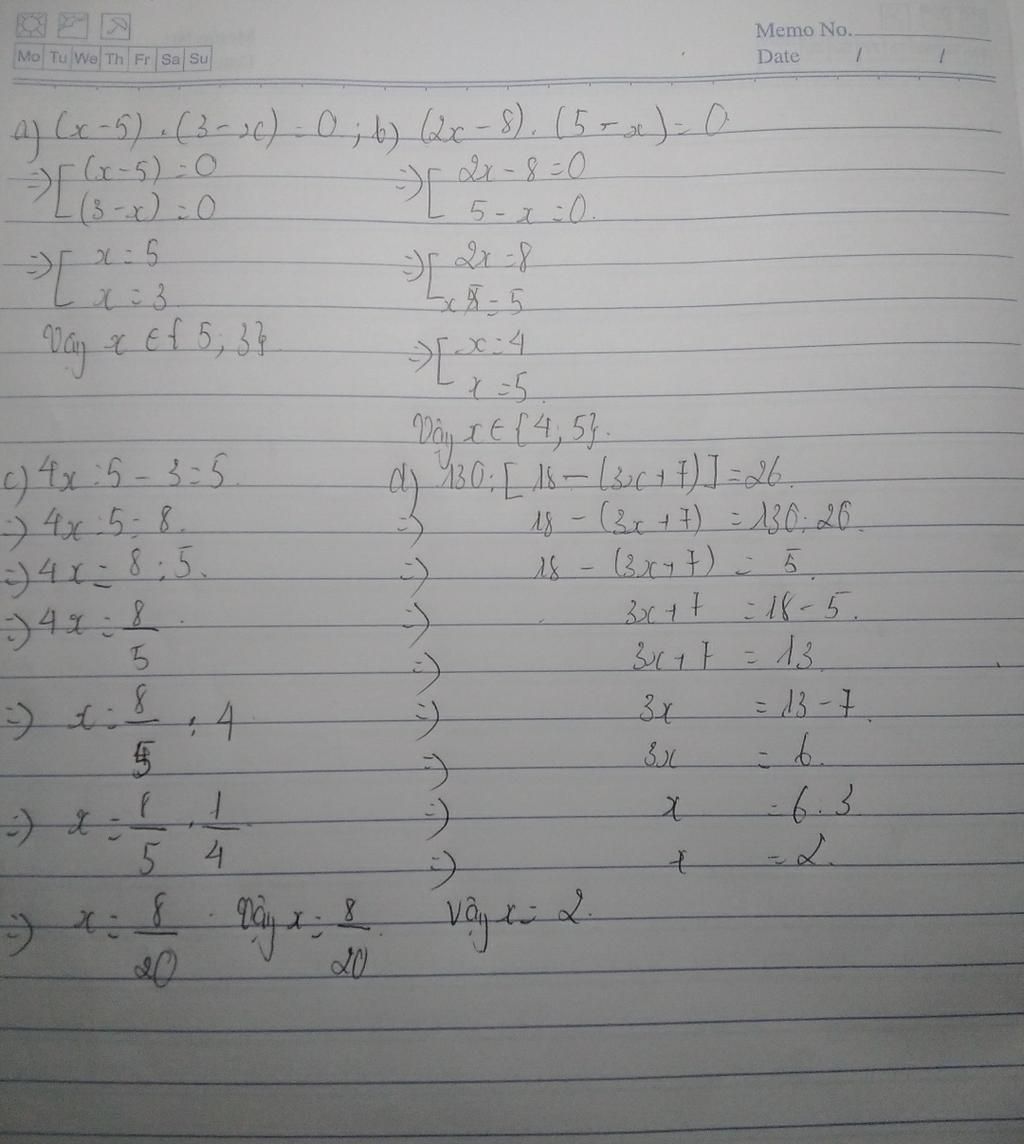 Memo No.
Mo Tu We Th Fr Sa Su
Date / /
a) (x-5) . (3-x) = 0 ; b) (2x-8) . (5-x) = 0
=> [ (x-5) = 0
(3-x) = 0
=> [ x = 5
x = 3
Vậy x ∈ { 5 ; 3}
=> [ 2x - 8 = 0
5 - x = 0.
=> [ 2x = 8
x = 5
=> [ x = 4
x = 5.
Vậy x ∈ {4; 5}.
c) 4x : 5 - 3 = 5.
=> 4x : 5 = 8.
=> 4x = 8 : 5.
=> 4x = 8/5.
=> x = 8/5 : 4
=> x = 8/5 . 1/4
=> x = 8/20. Vậy x = 8/20.
d) 130 : [ 18 - (3x + 7) ] = 26.
=> 18 - (3x + 7) = 130 : 26.
=> 18 - (3x + 7) = 5.
=> 3x + 7 = 18 - 5.
=> 3x + 7 = 13.
=> 3x = 13 - 7.
=> 3x = 6.
=> x = 6 : 3
=> x = 2.
Vậy x = 2.